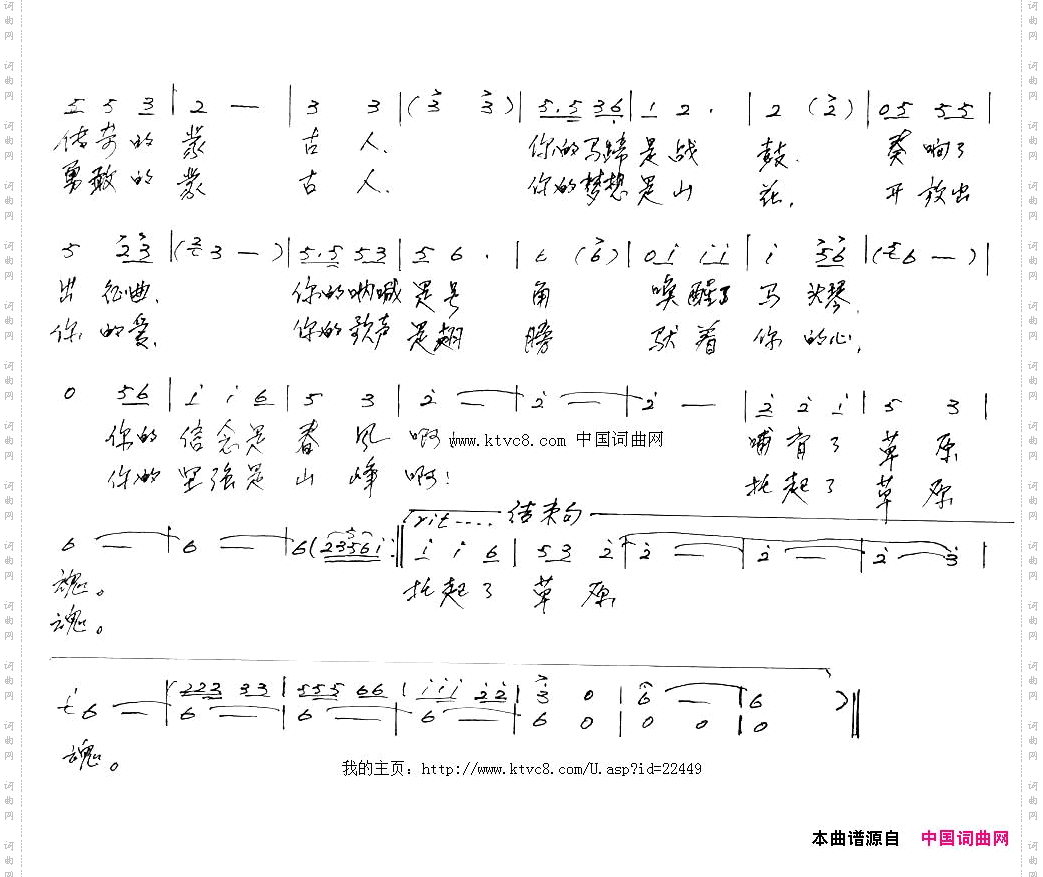 5 5 3 | 2 — | 3 3 | (3 3) | 5.5 36 | 1 2 . | 2 (2) | 05 55 |
传奇的蒙 古 人、 你的马蹄是战 鼓、 奏响了
勇敢的蒙 古 人、 你的梦想是山 花, 开放出
5 23 | (3 — ) | 5.5 53 | 5 6 . | 6 (6) | 0i ii | i 56 | (6 — ) |
出 征曲、 你的呐喊是号 角 唤醒了马 头琴,
你 的爱、 你的歌声是翅 膀 驮着你 的心,
0 56 | i i 6 | 5 3 | 2 — | 2 — | 2 — | 2 2 i | 5 3 |
你的 信念是 春 风 啊! www.ktvc8.com 中国词曲网 哺育了 草 原
你的 坚强是 山 峰 啊! 托起了 草 原
rit.... 结束句
6 — | 6 — | 6 (2356i :‖ i i 6 | 53 2 | 2 — | 2 — | 2 3 |
魂。 托起了 草 原
魂。
223 33 | 555 66 | iii 22 | 3 0 | 6 — | 6 ) ‖
6 — | 6 — | 6 — | 6 — | 6 0 | 0 0 | 0
魂。
我的主页：http://www.ktvc8.com/U.asp?id=22449
本曲谱源自 中国词曲网